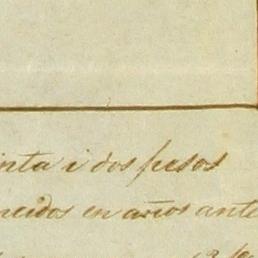 inta i dos pesos
neidos en años ante